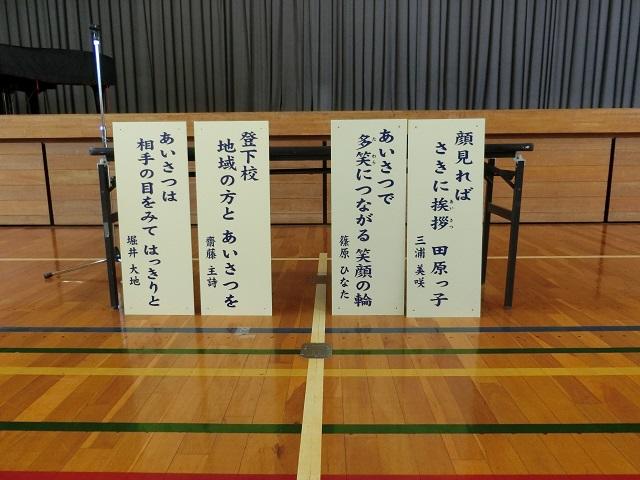 顔見れば
さきに挨拶 田原っ子
三浦 美咲
あいさつで
多笑につながる 笑顔の輪
篠原 ひなた
登下校
地域の方と あいさつを
齋藤 主詩
あいさつは
相手の目をみて はっきりと
堀井 大地